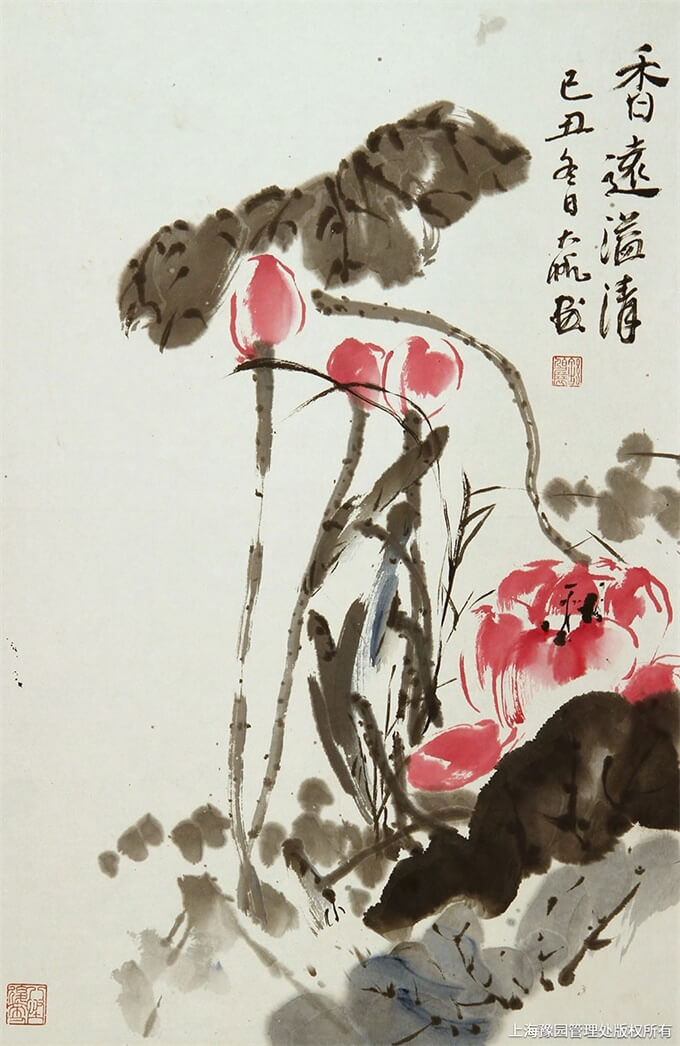 香远溢清
己丑冬日大帆画
上海豫园管理处版权所有